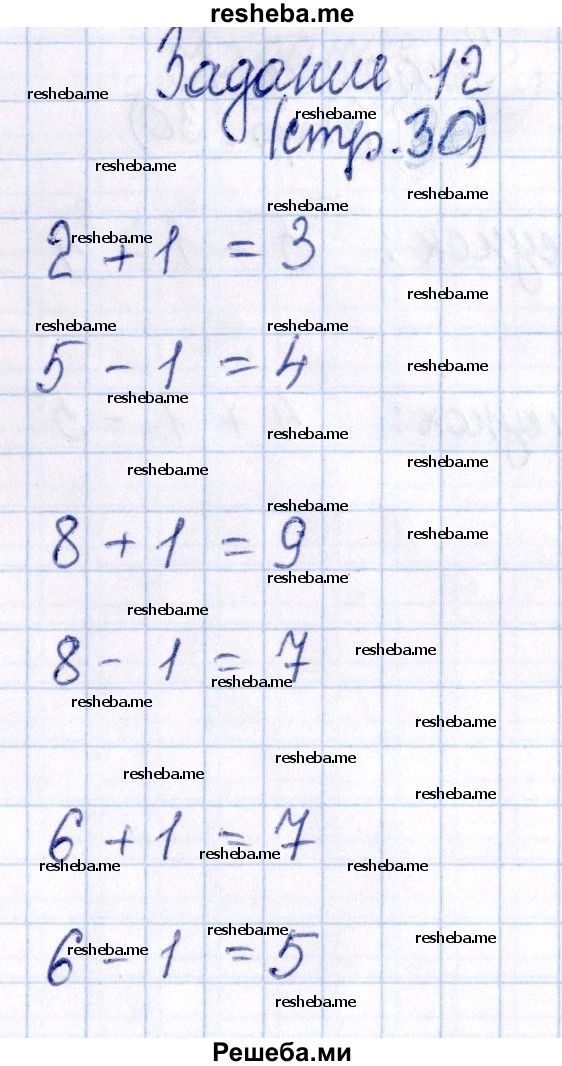 resheba.me
Задание 12
resheba.me
resheba.me
(стр. 30)
resheba.me
resheba.me
resheba.me
resheba.me
2 + 1 = 3
resheba.me
resheba.me
resheba.me
5 - 1 = 4
resheba.me
resheba.me
resheba.me
resheba.me
resheba.me
resheba.me
resheba.me
8 + 1 = 9
resheba.me
resheba.me
8 - 1 = 7
resheba.me
resheba.me
resheba.me
resheba.me
resheba.me
resheba.me
resheba.me
6 + 1 = 7
resheba.me
resheba.me
resheba.me
resheba.me
resheba.me
6 - 1 = 5
resheba.me
resheba.me
Решеба.ми